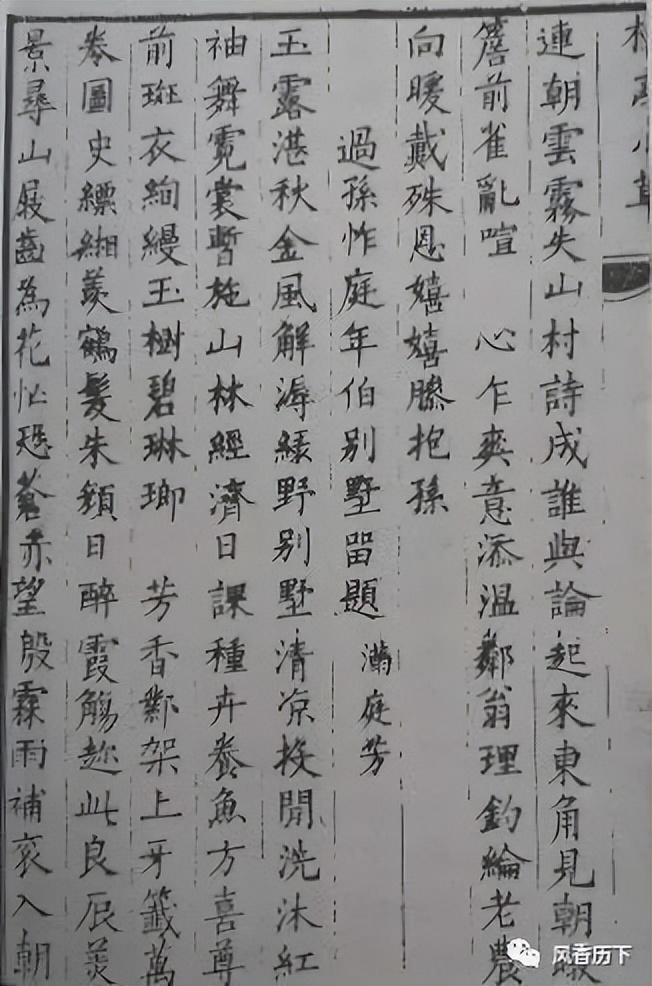 村亭小草
連朝雲霧失山村詩成誰與論起來東角見朝暾
簷前雀亂喧　心乍爽意添溫鄰翁理釣綸老農
向暖戴殊恩嬉嬉勝抱孫
過孫怍庭年伯別墅留題　滿庭芳
玉露湛秋金風解溽綠野別墅清凉投閒洗沐紅
袖舞霓裳暫施山林經濟日課種卉養魚方喜尊
前斑衣絢縵玉樹碧琳瑯　芳香鄴架上牙籤萬
卷圖史縹緗羨鶴髮朱顏日醉霞觴趂此良辰美
景尋山屐齒為花忙恐蒼赤望殷霖雨補衮入朝
风香历下